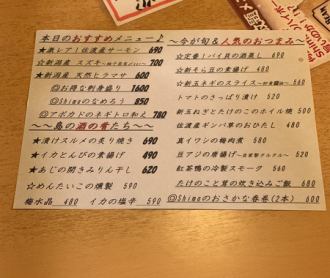 本日のおすすめメニュー♪
★激レア!佐渡産サーモン 690
☆新潟産 スズキ 700
★新潟産 天然ヒラマサ 600
◎お得な刺身盛り 1600
◎Shimaのなめろう 850
◎アボカドのネギトロ和え 780
～～島の酒の肴たち～～
★漬けスルメの炙り焼き 690
★イカとんびの素揚げ 490
★あじの開きみりん干し 620
☆めんたいこの燻製 590
梅水晶 480 イカの塩辛 590
～今が旬&人気のおつまみ～
☆定番!バイ貝の酒蒸し 690
☆新そら豆の素揚げ 480
☆新玉ネギのスライス
トマトのさっぱり漬け 520
新玉ねぎとたけのこのホイル焼 500
佐渡産ギンバ草のおひたし 480
真イワシの梅肉煮 580
豆アジの唐揚げ 520
紅茶鴨の冷製スモーク 560
たけのこと貝の炊き込みご飯 680
◎Shimaのおさかな春巻(2本) 600